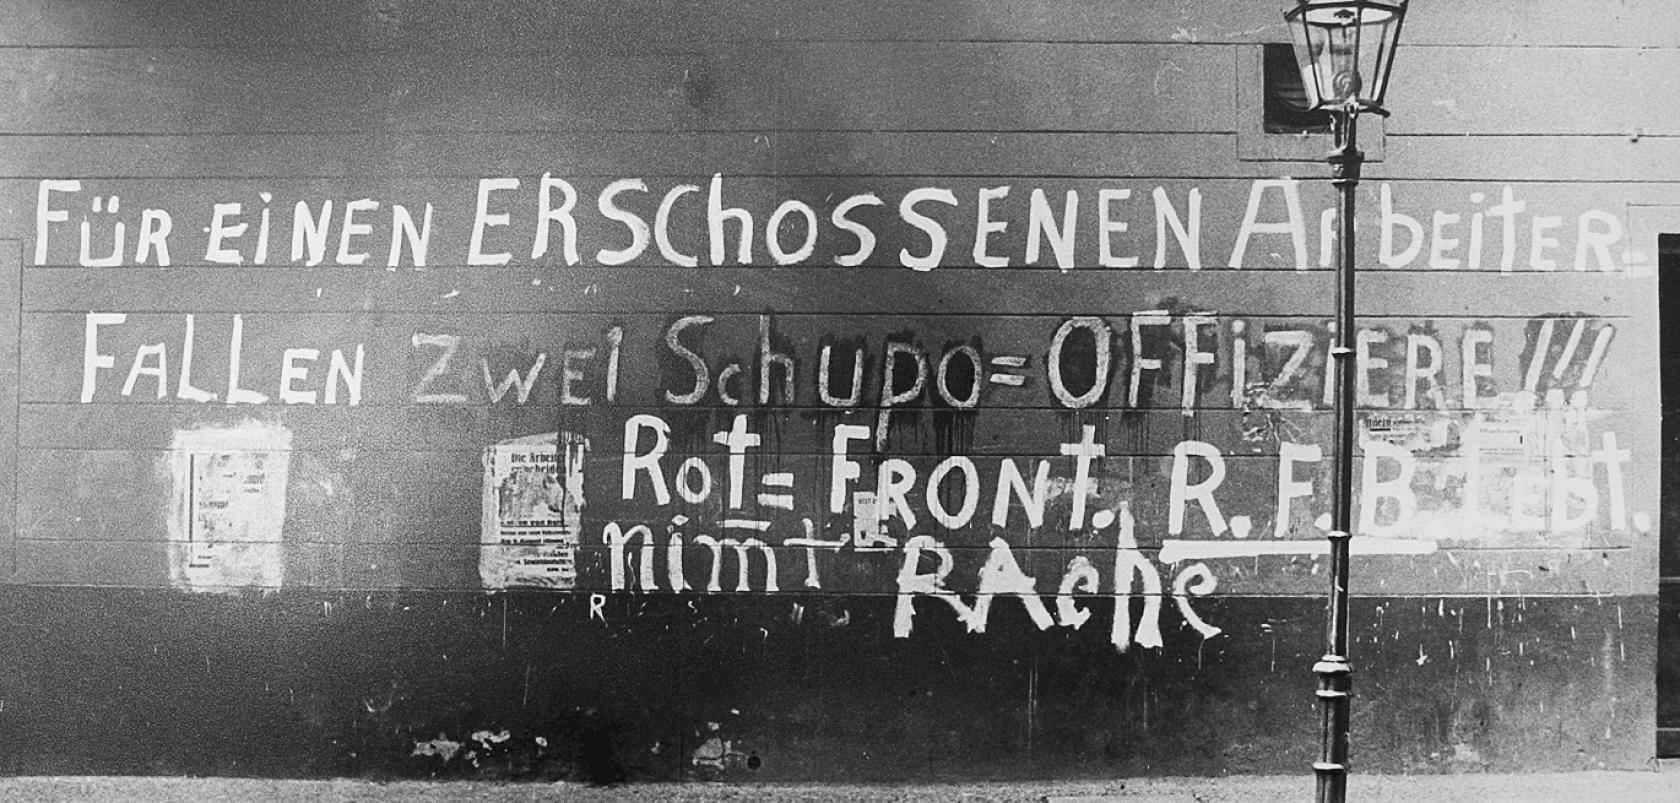 FÜR EiNEN ERSChOSSENEN ArbEitER=
FALLEN ZWEI SchUpo=OFFiZiERE!!!
Rot=FRONT. R.F.B. Lebt.
nimt RAche
Die Arbeiter
entscheiden
R